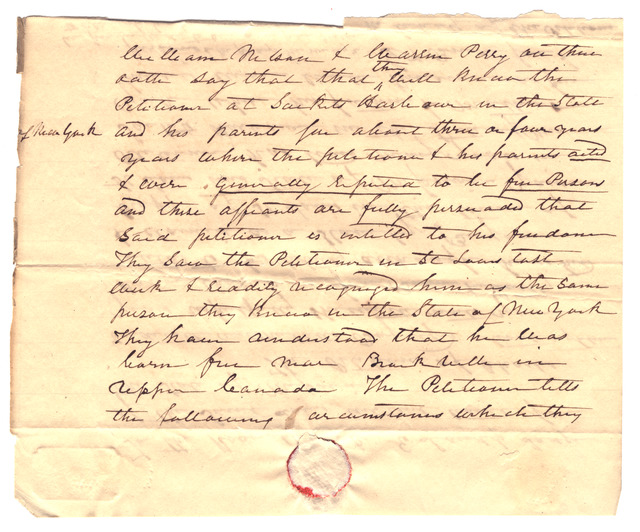 William Nelson & Warren Perry on their
oath say that that they Well Know the
Petitioner at Sackets Harbour in the State
of New York and his parents for about three or four years
years where the petitioner & his parents acted
& were Generally reputed to be free Persons
and these affiants are fully persuaded that
Said petitioner is intitled to his freedom
They Saw the Petitioner in St Louis last
Week & readily recognized him as the Same
person they Knew in the State of New York
They have understood that he Was
born free near Brockville in
Upper Canada The Petitioner tells
the following circumstances which they